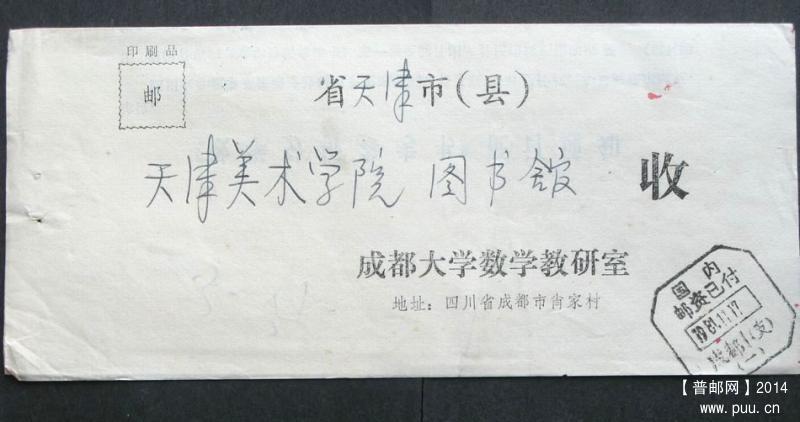 印刷品
邮
省天津市(县)
天津美术学院 图书馆 收
成都大学数学教研室
地址：四川省成都市肖家村
国内
邮资已付
1981.11.17.
成都1(支)
(一)
【普邮网】2014
www.puu.cn